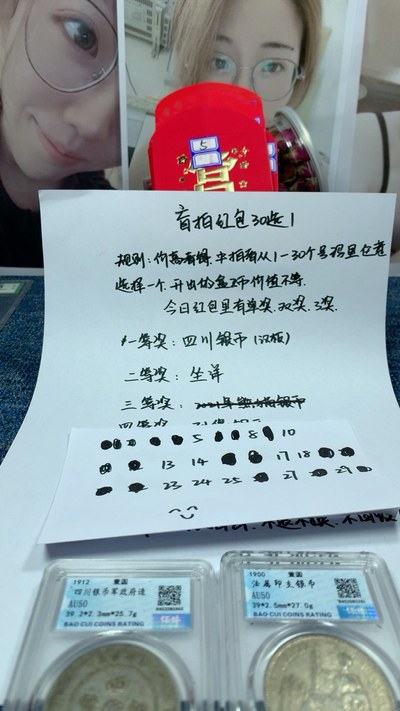 5
盲拍红包30选1
规则:价高者得,中拍者从1-30个号码里任意
选择一个.开出的金币价值不等.
今日红包里有单奖.双奖.3奖.
一等奖:四川银币(汉版)
二等奖:坐洋
三等奖:
5 8 10
13 14 17 18
23 24 25 27 29
1912 壹圆
四川银币军政府造
AU50
39.2*2.3mm*25.7g
BAO CUI COINS RATING
1900 壹圆
法属印支银币
AU50
39*2.5mm*27.0g
BAO CUI COINS RATING